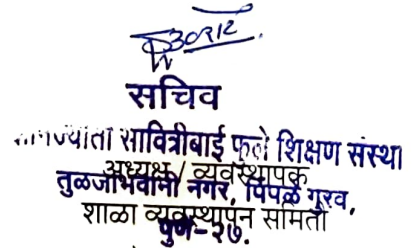 सचिव
सावित्रीबाई फुले शिक्षण संस्था
अध्यक्ष / व्यवस्थापक
तुळजाभवानी नगर, पिंपळे गुरव,
शाळा व्यवस्थापन समिती
पुणे-२७.